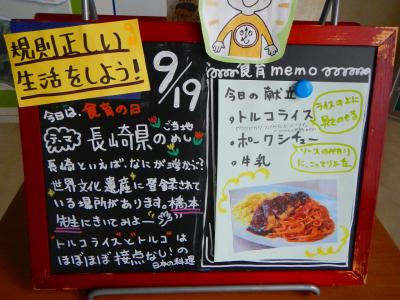 規則正しい
9月
生活をしよう!
9/19
今日は、食育の日
長崎県のめし
ご当地
長崎といえば、なにが浮かぶ?
世界文化遺産に登録されて
いる場所があります。橋本
先生にきいてみよー
"トルコライス"と"トルコ"は
ほぼほぼ接点なし!の
日本の料理
食育memo
今日の献立
・トルコライス
・ポークシチュー
・牛乳
ライスの上に
ソースの代わり
に、こってりと